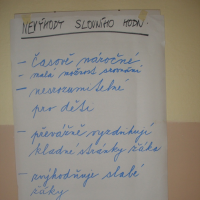 NEVÝHODY SLOVNÍHO HODN.
- časově náročné
- malá možnost srovnání
- nesrozumitelné
pro děti
- převážně vyzdvihují
kladné stránky žáka
- zvýhodňuje slabé
žáky